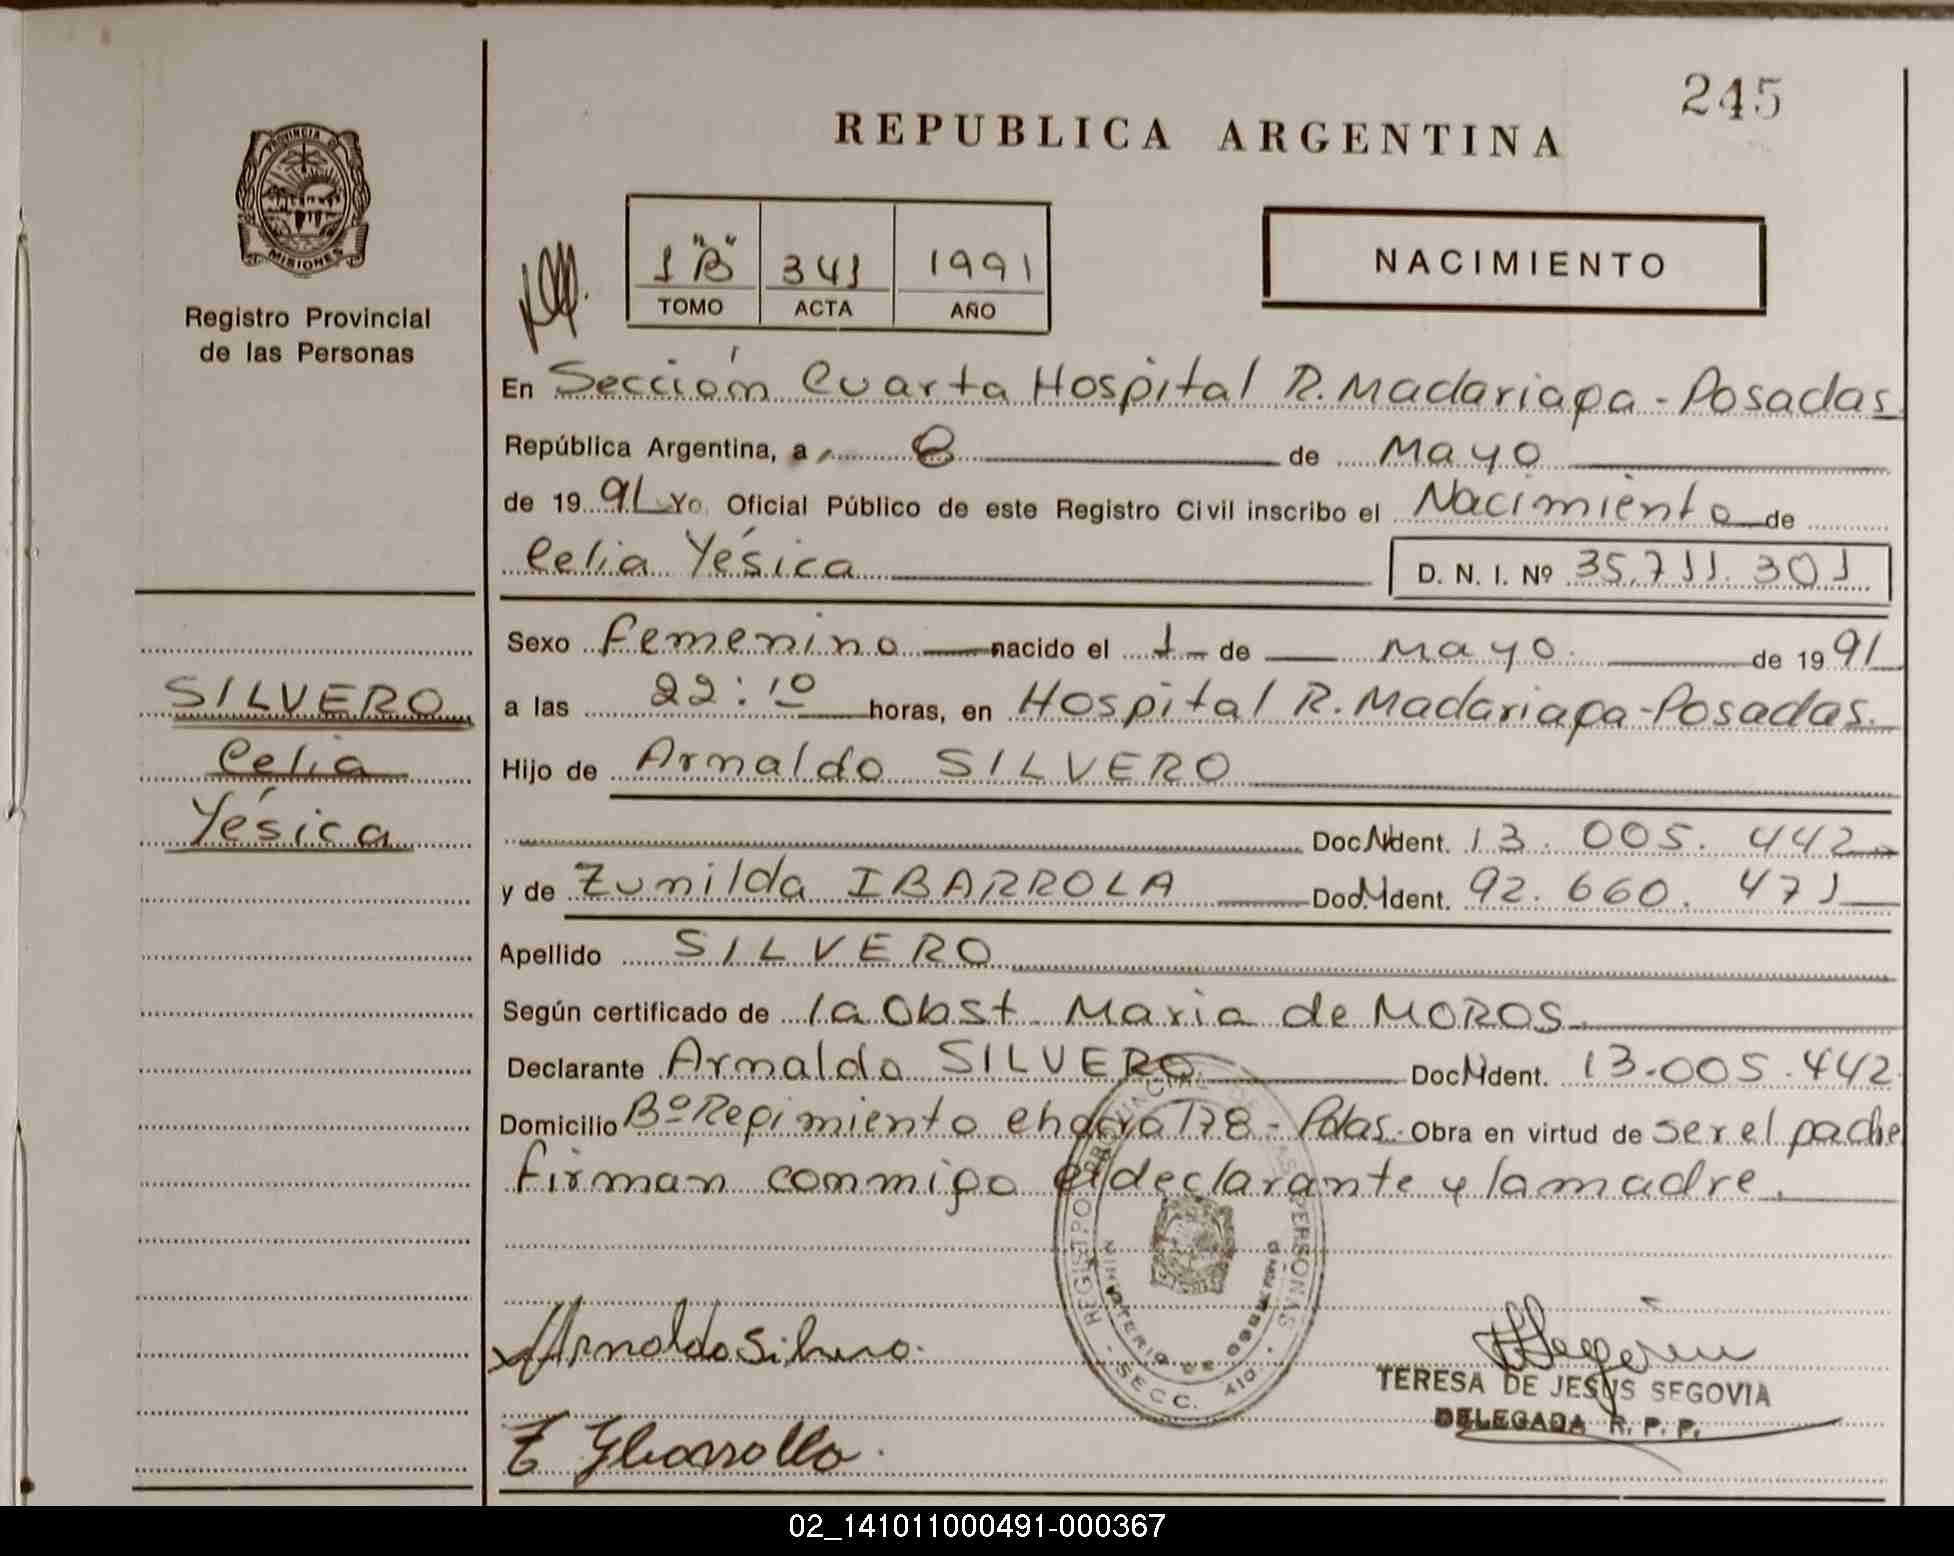 245
REPUBLICA ARGENTINA
PROVINCIA DE
MISIONES
Registro Provincial
de las Personas
1 "B" 341 1991
TOMO ACTA AÑO
NACIMIENTO
En Sección Cuarta Hospital R. Madariaga - Posadas
República Argentina, a 8 de Mayo
de 19 91 Yo Oficial Público de este Registro Civil inscribo el Nacimiento de
Celia Yésica D. N. I. Nº 35.711.301
Sexo Femenino nacido el 1 de Mayo de 19 91
a las 22:10 horas, en Hospital R. Madariaga - Posadas.
Hijo de Arnaldo SILVERO
Doc. N Ident. 13.005.442
y de Zunilda IBARROLA Doc. N Ident. 92.660.471
Apellido SILVERO
Según certificado de la Obst. Maria de MOROS.
Declarante Arnaldo SILVERO Doc N Ident. 13.005.442
Domicilio Bº Regimiento chacra 178 - Pdas. Obra en virtud de ser el padre
firman conmigo el declarante y la madre.
SILVERO
Celia
Yésica
REGISTRO PROVINCIAL DE LAS PERSONAS
MINISTERIO DE GOBIERNO
SECC. 4ta.
Arnaldo Silvero.
TERESA DE JESUS SEGOVIA
DELEGADA R. P. P.
Z Ybarrolla.
02_141011000491-000367